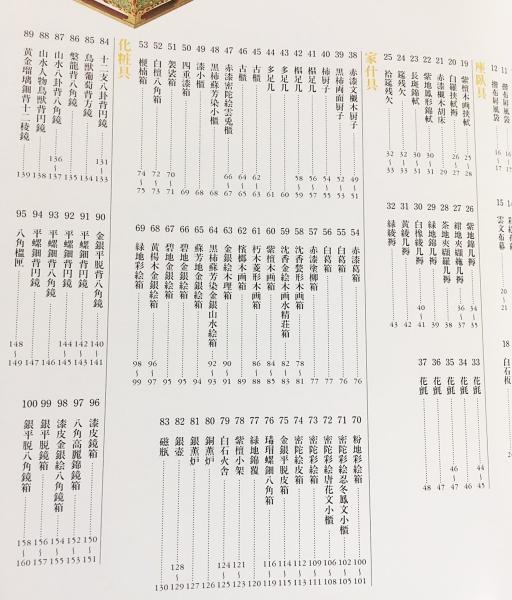 11 擣布屏風袋
12 擣布屏風袋
18 白石板
座臥具
19 紫檀木画挟軾 25～27
20 白羅挟軾褥 26～28
21 赤漆槻木胡床 29
22 紫地鳳形錦軾 30～31
23 長斑錦軾 30～31
24 筵残欠 32～33
25 袷筵残欠 32～33
26 紫地錦几褥 34～35
27 紺地夾纈絁几褥 36～37
28 茶地夾纈羅几褥 38
29 緑地錦几褥 39
30 白橡綾几褥 40～41
31 黄綾几褥 42
32 緑綾褥 43
33 花氈 44～45
34 花氈 46
35 花氈 46～47
36 花氈 47
37 花氈 48
家什具
38 赤漆文槻木厨子 49～51
39 黒柿両面厨子 52～53
40 柿厨子 54～55
41 榻足几 56～57
42 榻足几 58～59
43 多足几 60
44 多足几 61
45 古櫃 62～63
46 古櫃 64～65
47 赤漆密陀絵雲兎櫃 66～67
48 黒柿蘇芳染小櫃 68
49 漆小櫃 68
50 四重漆箱 69
51 袈裟箱 70～71
52 白檀八角箱 72～73
53 梗楠箱 74～75
54 赤漆葛箱 76
55 白葛箱 76
56 白葛箱 77
57 赤漆塗柳箱 77
58 沈香螌形木画箱 78～81
59 沈香金絵木画水精荘箱 82～83
60 紫檀木画箱 84～85
61 朽木菱形木画箱 86～88
62 檳榔木画箱 89
63 金銀絵木理箱 90～91
64 黒柿蘇芳染金銀山水絵箱 92～93
65 蘇芳地金銀絵箱 94
66 碧地金銀絵箱 94
67 碧地金銀絵箱 95
68 黄楊木金銀絵箱 96～97
69 緑地彩絵箱 98～99
70 粉地彩絵箱 100～101
71 密陀彩絵忍冬鳳文小櫃 102～105
72 密陀彩絵唐花文小櫃 106～108
73 密陀彩絵箱 109～111
74 密陀絵皮箱 112～113
75 金銀平脱皮箱 114～115
76 瑇瑁螺鈿八角箱 116～119
77 緑地錦覆 120
78 紫檀小架 121～123
79 白石火舎 124～125
80 銅薫炉 126
81 銀薫炉 127
82 銀壺 128～129
83 磁瓶 130
化粧具
84 十二支八卦背円鏡 131～133
85 鳥獣葡萄背方鏡 134
86 槃龍背八角鏡 135
87 山水八卦背八角鏡 136～137
88 山水人物鳥獣背円鏡 138
89 黄金瑠璃鈿背十二稜鏡 139
90 金銀平脱背八角鏡 140～141
91 平螺鈿背円鏡 142～143
92 平螺鈿背円鏡 144～145
93 平螺鈿背八角鏡 146
94 平螺鈿背円鏡 147
95 八角榲匣 148～149
96 漆皮鏡箱 150～151
97 八角高麗錦鏡箱 152～153
98 漆皮金銀絵八角鏡箱 154～155
99 銀平脱鏡箱 156～157
100 銀平脱八角鏡箱 158～160